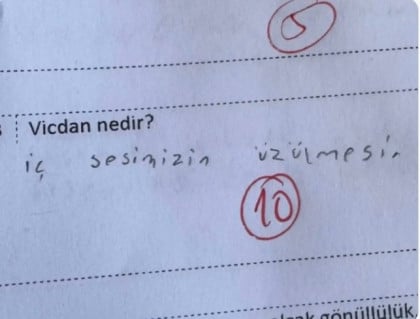 5
Vicdan nedir?
iç sesimizin üzülmesi.
10
gönüllülük